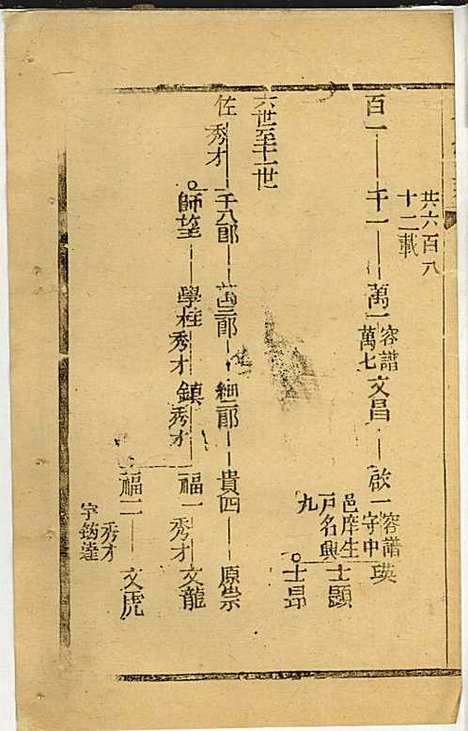 共六百八
十二載
百一——千一——萬一容譜萬七文昌——啟一容譜字中瑛
邑庠生士顯
戶名與
九
士昂
六世至十一世
佐秀才——千八郎——萬三郎——細二郎——貴四——原崇
師望——學桂秀才鎮秀才福一秀才文龍
福二——文虎
秀才
字鈞達